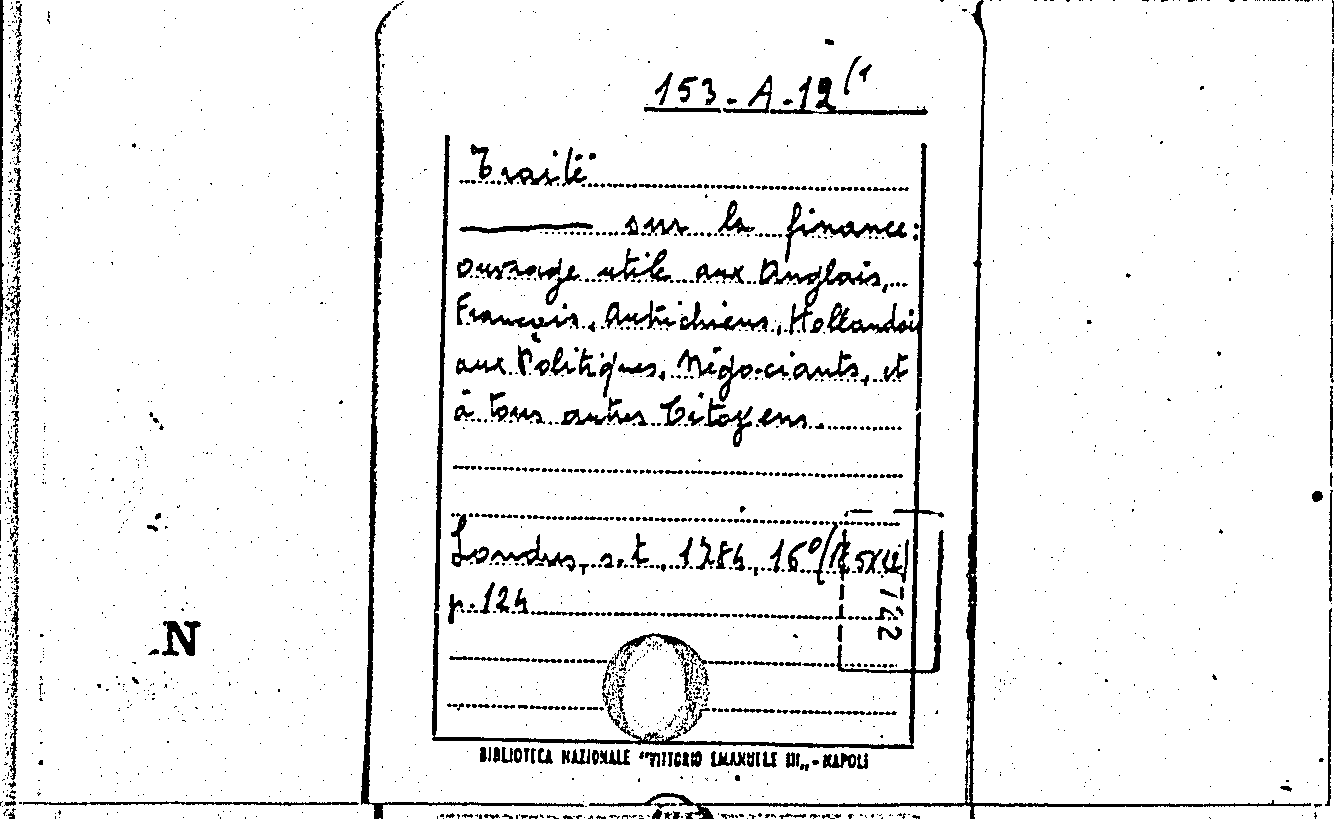 153-A-12(1
Traité
sur la finance:
ouvrage utile aux Anglais,
François, Autrichiens, Hollandois
aux Politiques, Négociants, et
à tous autres Citoyens.
Londres, s.t., 1784, 16°
p. 124
722
N
BIBLIOTECA NAZIONALE "VITTORIO EMANUELE III„ - NAPOLI